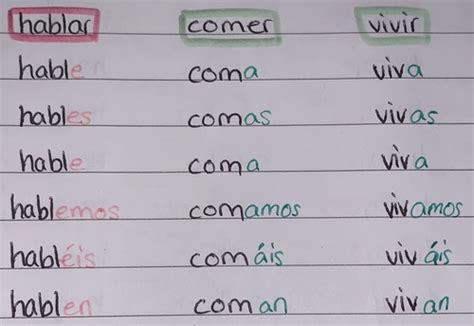 hablar comer vivir
hable coma viva
hables comas vivas
hable coma viva
hablemos comamos vivamos
habléis comáis viváis
hablen coman vivan